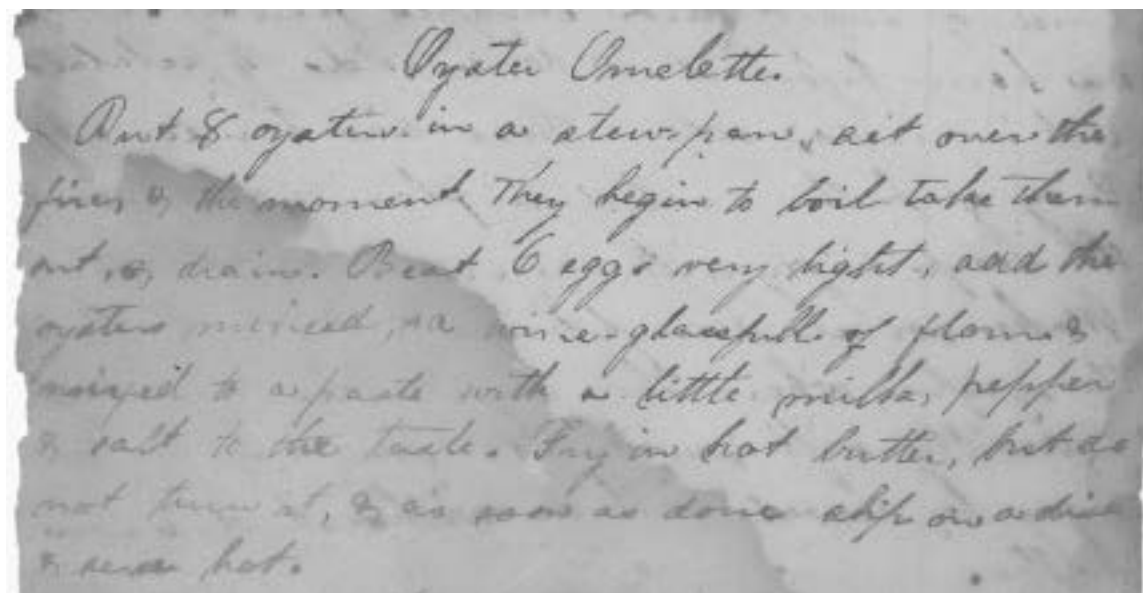 Oyster Omelette.
Put 8 oysters in a stew-pan, set over the
fire, & the moment they begin to boil take them
out, & drain. Beat 6 eggs very light, add the
oysters minced, a wine-glassfull of flour &
mixed to a paste with a little milk, pepper
& salt to the taste. Fry in hot butter, but do
not turn it, & as soon as done slip on a dish
& serve hot.